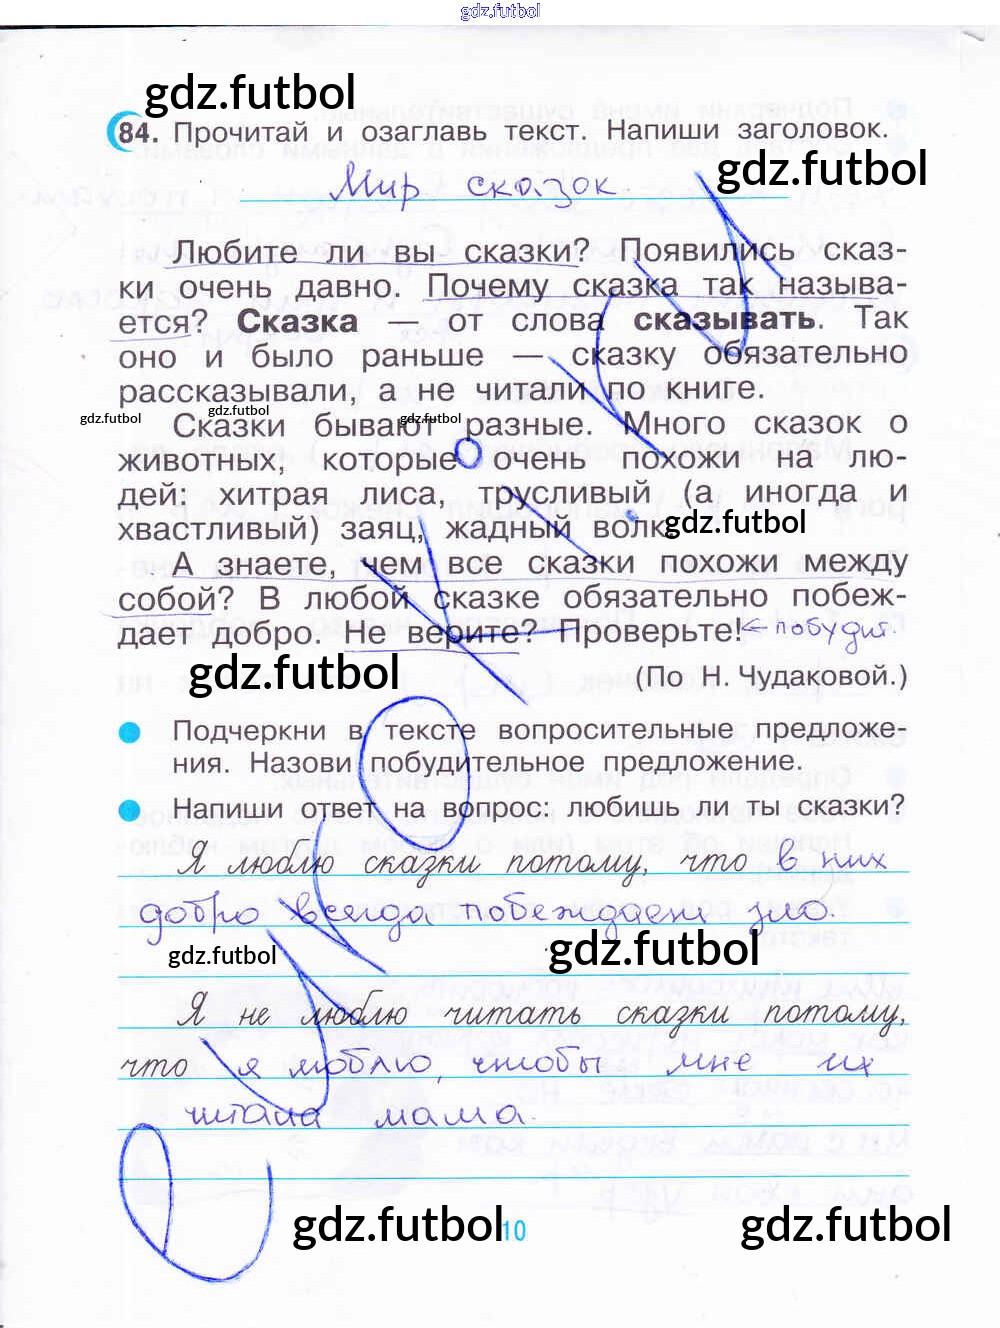 gdz.futbol
gdz.futbol
84. Прочитай и озаглавь текст. Напиши заголовок.
gdz.futbol
Мир сказок
Любите ли вы сказки? Появились сказ-
ки очень давно. Почему сказка так называ-
ется? Сказка — от слова сказывать. Так
оно и было раньше — сказку обязательно
рассказывали, а не читали по книге.
gdz.futbol gdz.futbol gdz.futbol
Сказки бывают разные. Много сказок о
животных, которые очень похожи на лю-
дей: хитрая лиса, трусливый (а иногда и
хвастливый) заяц, жадный волк.
gdz.futbol
А знаете, чем все сказки похожи между
собой? В любой сказке обязательно побеж-
дает добро. Не верите? Проверьте! ← побудит.
gdz.futbol
(По Н. Чудаковой.)
Подчеркни в тексте вопросительные предложе-
ния. Назови побудительное предложение.
Напиши ответ на вопрос: любишь ли ты сказки?
Я люблю сказки потому, что в них
добро всегда побеждает зло.
gdz.futbol gdz.futbol
Я не люблю читать сказки потому,
что я люблю, чтобы мне их
читала мама.
gdz.futbol 10 gdz.futbol